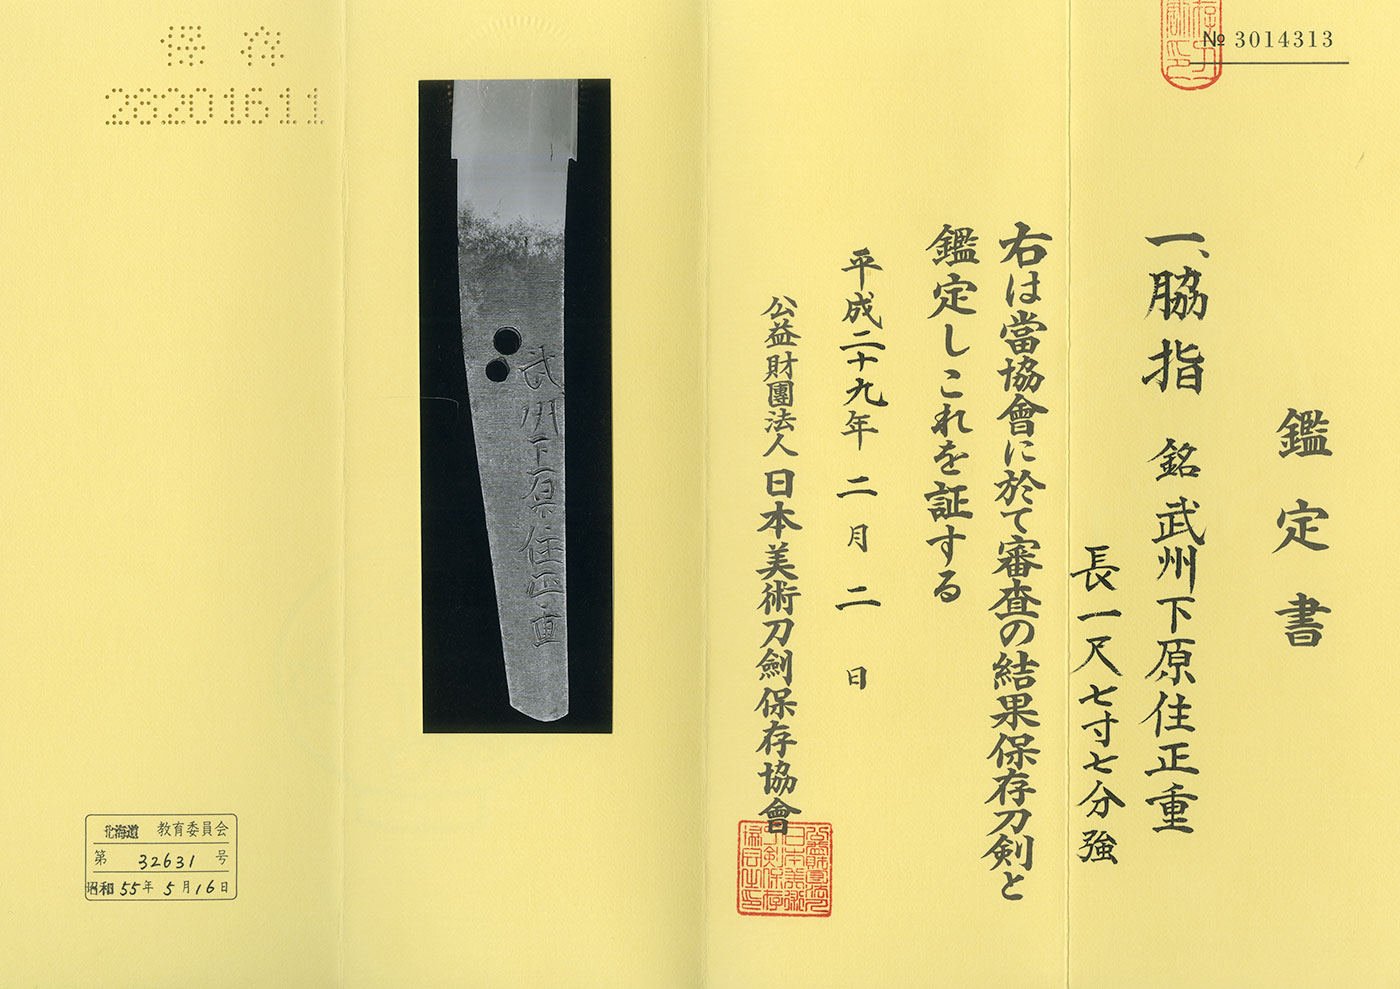 № 3014313
鑑定書
一、脇指 銘 武州下原住正重
長一尺七寸七分強
右は當協會に於て審査の結果保存刀剣と
鑑定しこれを証する
平成二十九年 二月 二日
公益財團法人 日本美術刀劍保存協會
武州下原住正重
保存
28201611
北海道 教育委員会
第 32631 号
昭和 55年 5月 16日